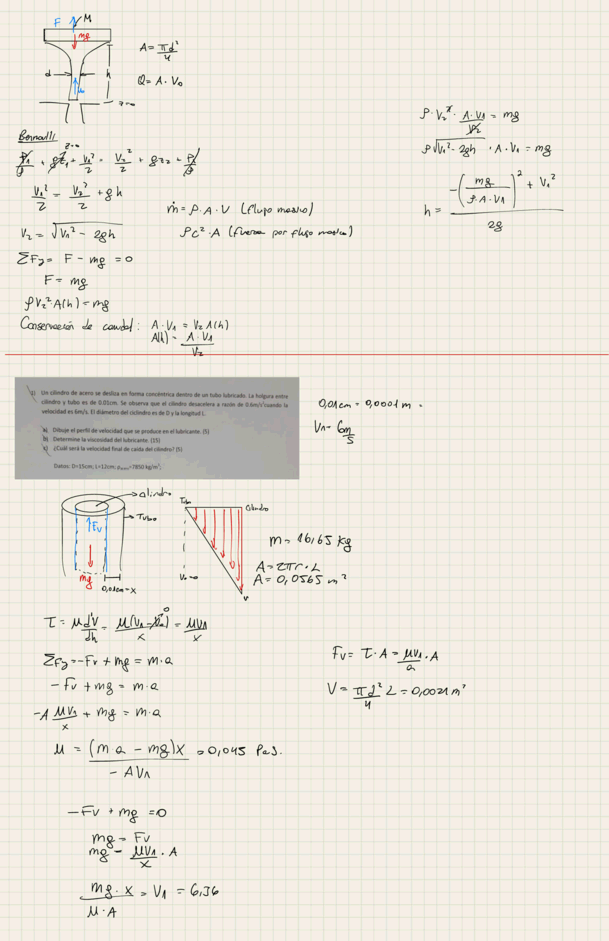 F
M
mg
A = πd²/4
d
h
Q = A · V₀
z=0
Bernoulli
z=0
P₁/ρ + gz₁ + V₁²/2 = V₂²/2 + gz₂ + P₂/ρ
V₁²/2 = V₂²/2 + gh
V₂ = √(V₁² - 2gh)
ΣFy = F - mg = 0
F = mg
ρV₂² A(h) = mg
Conservación de caudal: A · V₁ = V₂ A(h)
A(h) = A · V₁/V₂
ṁ = ρ · A · V (flujo masico)
ρc² · A (fuerza por flujo masico)
ρ · V₂² · A · V₁/V₂ = mg
ρ√(V₁² - 2gh) · A · V₁ = mg
h = (-(mg/(ρ · A · V₁))² + V₁²)/2g
Un cilindro de acero se desliza en forma concéntrica dentro de un tubo lubricado. La holgura entre
cilindro y tubo es de 0.01cm. Se observa que el cilindro desacelera a razón de 0.6m/s² cuando la
velocidad es 6m/s. El diámetro del ciclindro es de D y la longitud L.
a) Dibuje el perfil de velocidad que se produce en el lubricante. (5)
b) Determine la viscosidad del lubricante. (15)
c) ¿Cuál será la velocidad final de caída del cilindro? (5)
Datos: D=15cm; L=12cm; ρacero=7850 kg/m³,
0,01cm = 0,0001 m =
V₁ = 6 m/s
cilindro
Tubo
Fv
mg
0,01cm = x
Tubo
Cilindro
V=0
V
m = 16,65 kg
A = 2πr · L
A = 0,0565 m²
τ = μ dV/dh = μ(V₁ - V₀)/x = μV₁/x
0
ΣFy = -Fv + mg = m · a
-Fv + mg = m · a
-A μV₁/x + mg = m · a
μ = (m a - mg)x/(-AV₁) = 0,045 Pa s.
Fv = τ · A = μV₁/a · A
V = πd²/4 L = 0,0021 m³
-Fv + mg = 0
mg = Fv
mg = μV₁/x · A
mg · x/(μ · A) = V₁ = 6,36